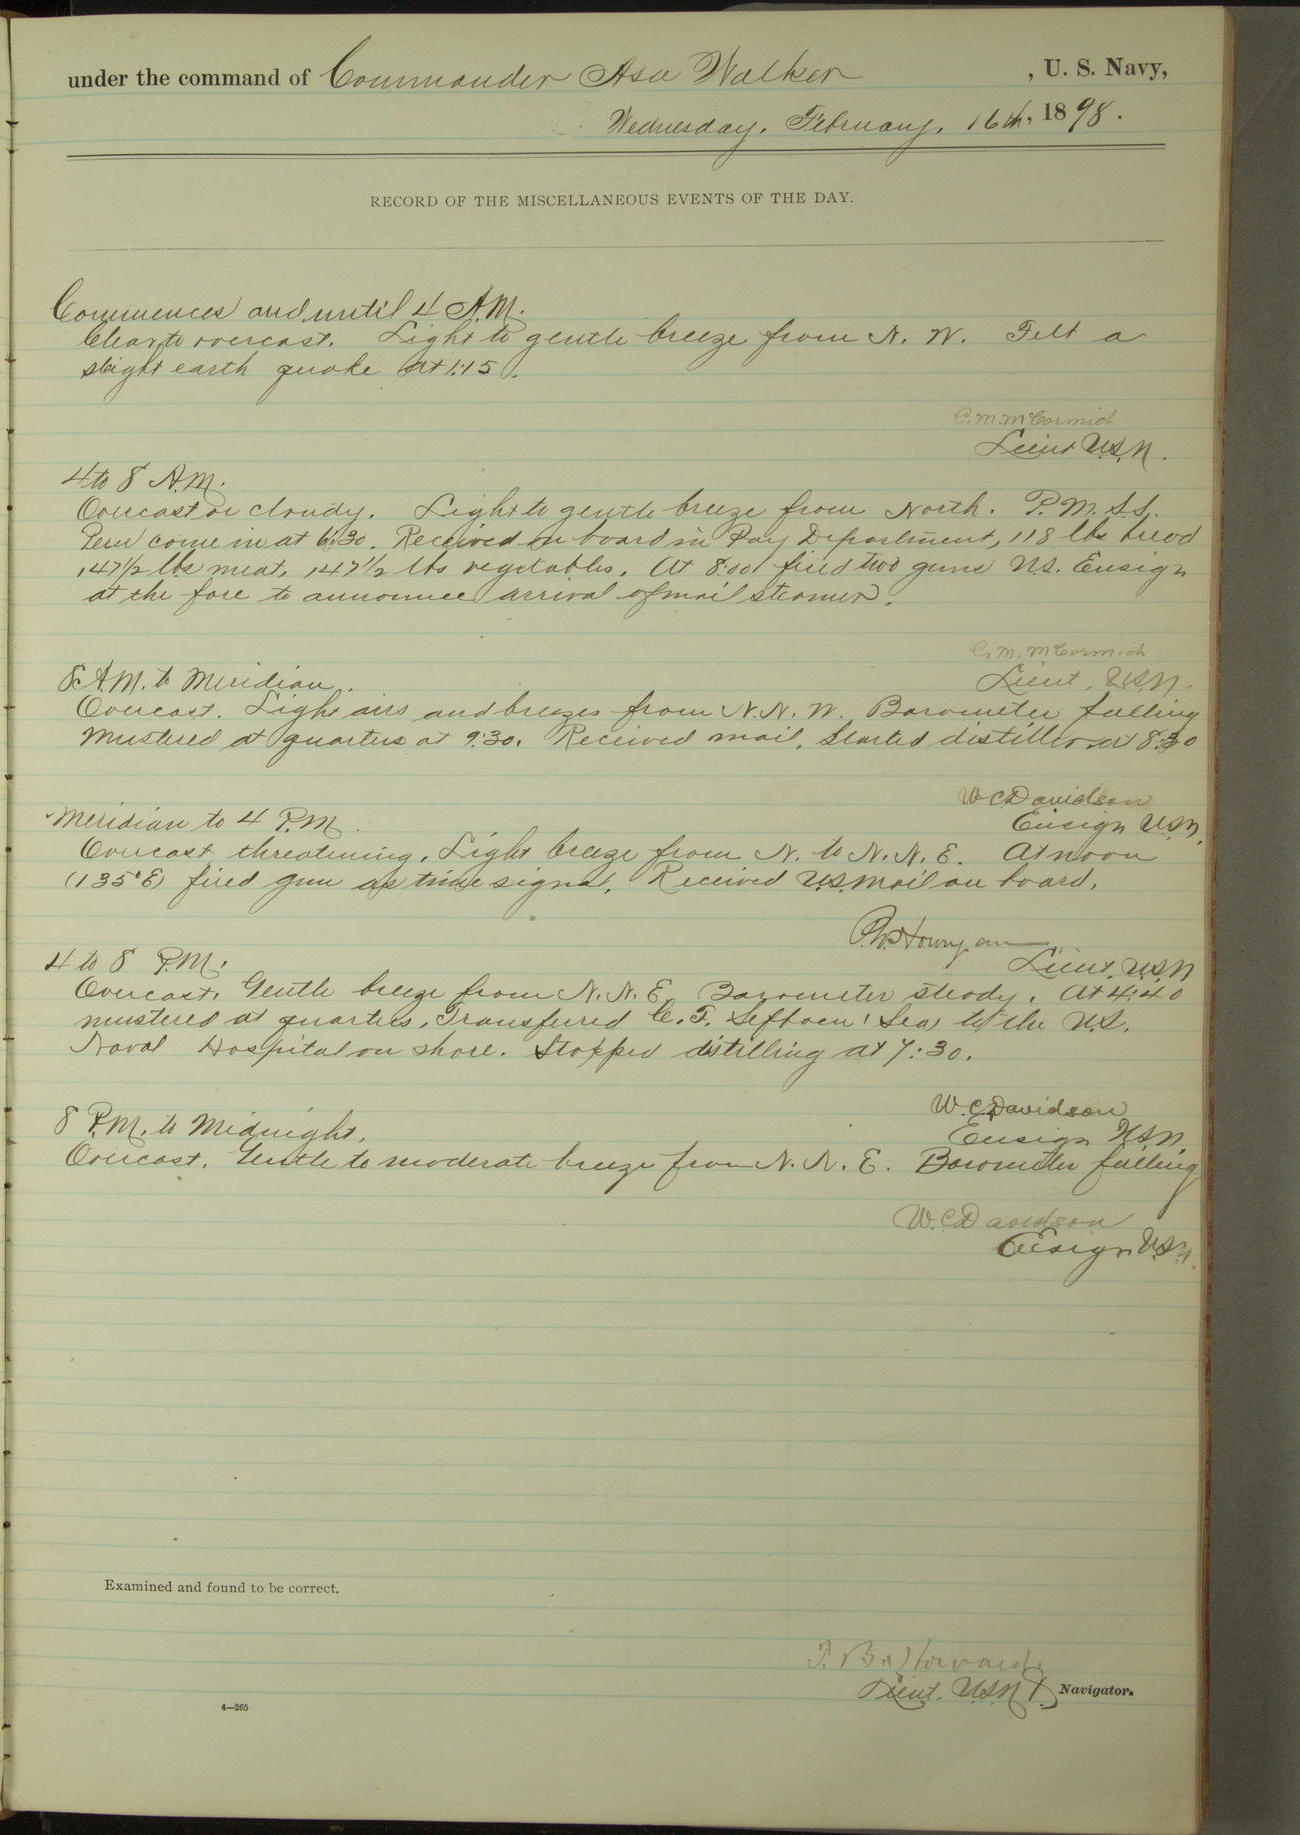 under the command of Commander Asa Walker, U. S. Navy,
Wednesday, February, 16th, 1898.
RECORD OF THE MISCELLANEOUS EVENTS OF THE DAY.
Commences and until 4 A.M.
Clear to overcast. Light to gentle breeze from N. W. Felt a
slight earth quake at 1:15.
C. M. McCormick
Lieut U.S.N.
4 to 8 A.M.
Overcast or cloudy. Light to gentle breeze from North. P. M. S. S.
Peru come in at 6:30. Received on board in Pay Department, 118 lbs bread
147 1/2 lbs meat, 147 1/2 lbs vegetables. At 8:00 fired two guns U.S. Ensign
at the fore to announce arrival of mail steamer.
C. M. McCormick
Lieut. U.S.N.
8 A.M. to Meridian.
Overcast. Light airs and breezes from N.N.W. Barometer falling
Mustered at quarters at 9:30. Received mail. Started distiller at 8:30
W C Davidson
Ensign U.S.N.
Meridian to 4 P.M.
Overcast threatening. Light breeze from N. to N. N. E. At noon
(135°E) fired gun as time signal. Received U.S. Mail on board.
Lieut. U.S.N
4 to 8 P.M.
Overcast. Gentle breeze from N. N. E. Barometer steady. At 4:40
mustered at quarters. Transferred C. F. (Sea) to the U.S.
Naval Hospital on shore. Stopped distilling at 7:30.
W. C. Davidson
Ensign U.S.N.
8 P.M. to Midnight.
Overcast. Gentle to moderate breeze from N. N. E. Barometer falling
W. C. Davidson
Ensign U.S.N.
Examined and found to be correct.
T. B. Howard.
Lieut. U.S.N., Navigator.
4—265